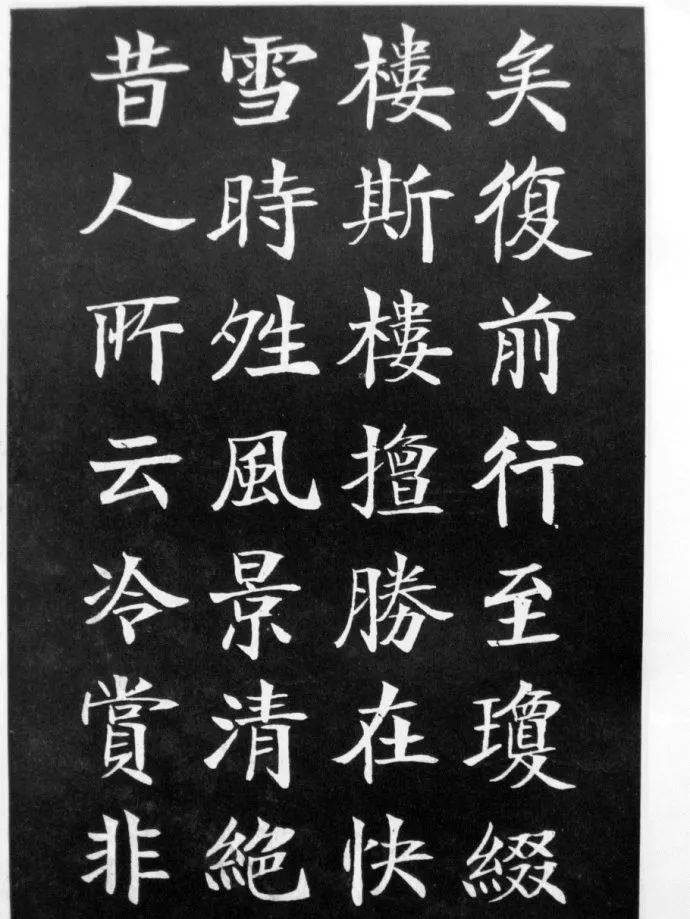 矣復前行至瓊綴
樓斯樓擅勝在快
雪時姓風景清絕
昔人所云冷賞非